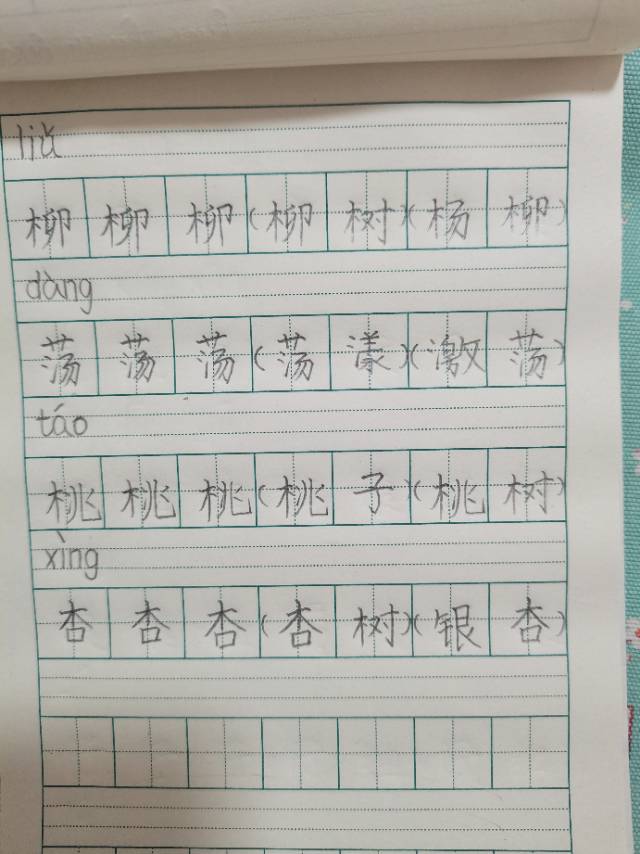 liǔ
柳柳柳(柳树)(杨柳)
dàng
荡荡荡(荡漾)(激荡)
táo
桃桃桃(桃子)(桃树)
xìng
杏杏杏(杏树)(银杏)